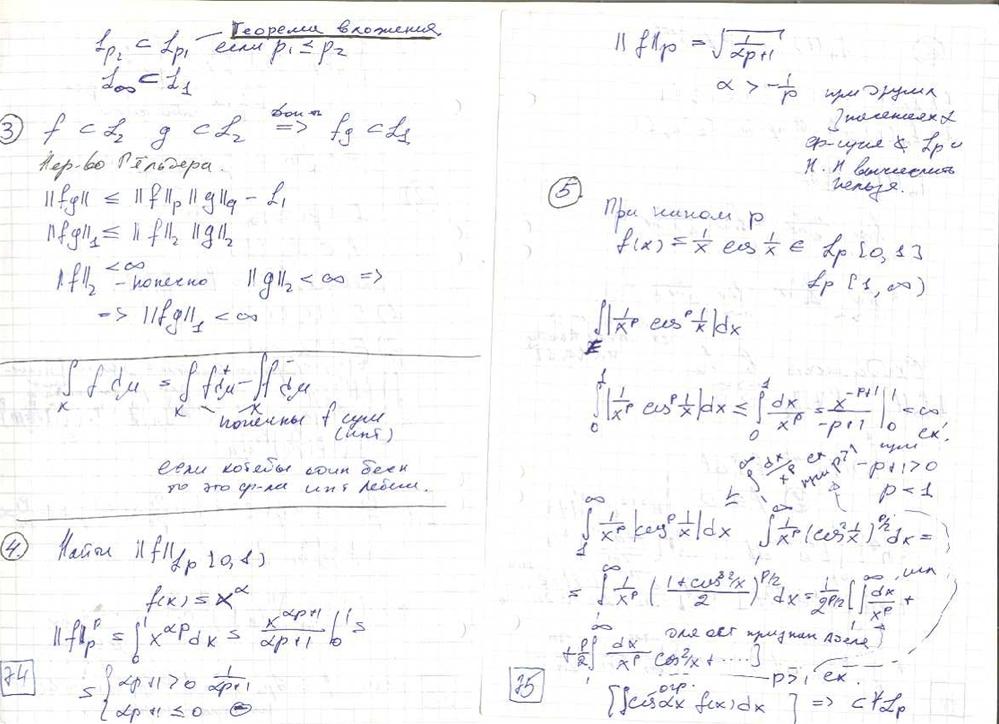 Теорема вложения
L_{p_2} ⊂ L_{p_1} если p_1 ≤ p_2
L_∞ ⊂ L_1
3 f ⊂ L_2 g ⊂ L_2 ⇒ fg ⊂ L_1
Нер-во Гёльдера.
||fg|| ≤ ||f||_p ||g||_q - L_1
||fg||_1 ≤ ||f||_2 ||g||_2
||f||_2 < ∞ - конечно ||g||_2 < ∞ =>
=> ||fg||_1 < ∞
∫_X f dμ = ∫_X f^+ dμ - ∫_X f^- dμ
конечны f сум
(инт)
если хотябы один беск
то это ф-ла инт Лебега.
4. Найти ||f||_{L_p [0,1)}
f(x) = x^α
||f||_p^p = ∫_0^1 x^{αp} dx = x^{αp+1}/(αp+1) |_0^1 =
= { αp+1>0 1/(αp+1)
{ αp+1 ≤ 0
74
||f||_p = √(1/(αp+1))
α > -1/p при других
значениях α
ф-ция ∉ L_p и
нельзя.
5.
При каком p
f(x) = 1/x cos 1/x ∈ L_p [0,1]
L_p [1,∞)
∫|1/x^p cos^p 1/x| dx
∫_0^1 |1/x^p cos^p 1/x| dx ≤ ∫_0^1 dx/x^p = x^{-p+1}/(-p+1) |_0^1 = ∞
сх. при
∫ dx/x^p сх при p>1 -p+1>0
p<1
∫_1^∞ 1/x^p |cos^p 1/x| dx ∫_1^∞ 1/x^p (cos^2 1/x)^{p/2} dx =
= ∫_1^∞ 1/x^p ((1+cos 2/x)/2)^{p/2} dx = 1/2^{p/2} [∫_1^∞ dx/x^p +
+ p/2 ∫_1^∞ dx/x^p cos 2/x + ....]
p>1, сх.
75